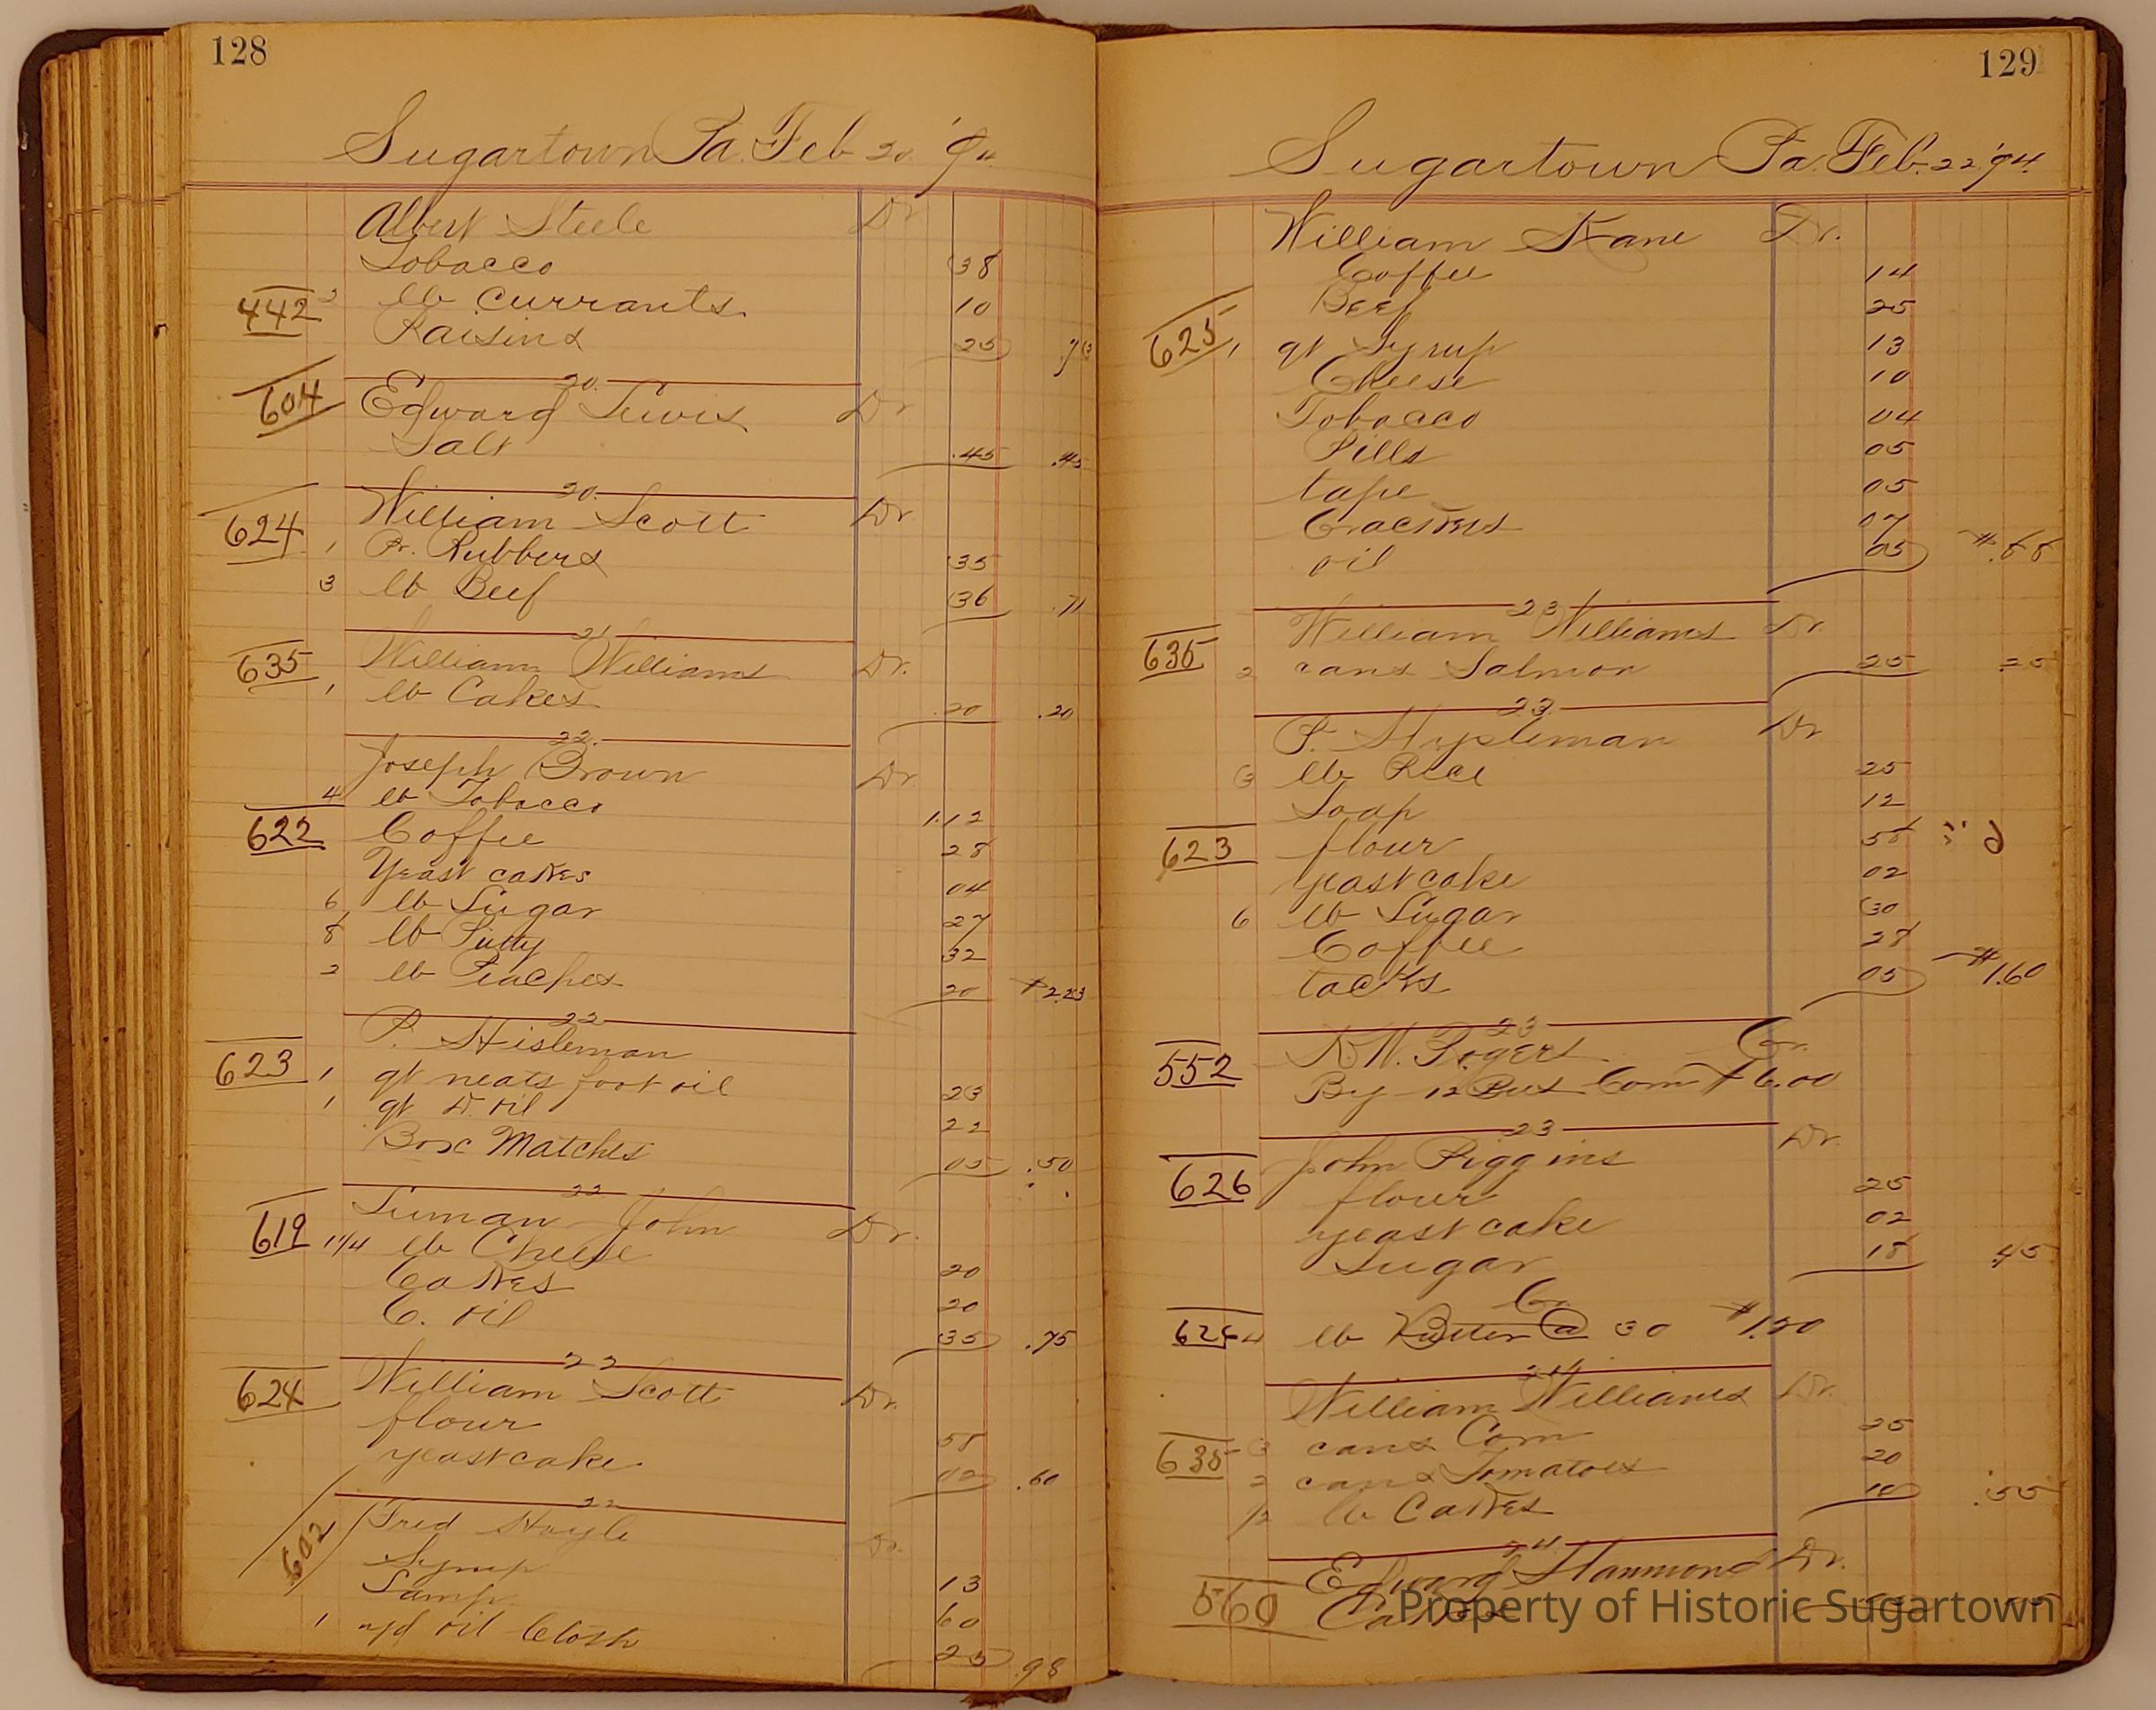 128
Sugartown Pa. Feb 20 '94
Albert Steele Dr
Tobacco 38
442 2 lb Currants 10
Raisins 25 .73
20
604 Edward Lewis Dr
Salt .45 .45
20
624 William Scott Dr
1 Pr. Rubbers 35
3 lb Beef 36 .71
21
635 William Williams Dr.
1 lb Cakes .20 .20
22
Joseph Brown Dr
4 lb Tobacco 1.12
622 Coffee 28
Yeast cakes 04
6 lb Sugar 27
8 lb Putty 32
2 lb Peaches 20 $2.23
22
P. Stisleman
623 1 qt neats foot oil 23
1 qt oil 22
Box Matches 05 .50
22
Luman John Dr.
619 1 1/4 lb Cheese 20
Cakes 20
C. oil 35 .75
22
624 William Scott Dr.
flour 58
yeastcake 02 .60
22
602 Fred Hoyle Dr.
Syrup 13
Lamp 60
1 yd oil Cloth 25 .98
129
Sugartown Pa. Feb. 22 '94.
William Kane Dr.
Coffee 14
Beef 25
625 1 qt Syrup 13
Cheese 10
Tobacco 04
Pills 05
tape 05
Crackers 07
oil 05 $.88
23
William Williams Dr.
635 2 cans Salmon 25 .25
23
P. Stysleman Dr
3 lb Rice 25
Soap 12
623 flour 58
yeastcake 02
6 lb Sugar 30
Coffee 28
tacks 05 $1.60
23
552 Rogers. Cr.
By 12 Bus Corn $6.00
23
626 John Riggins Dr.
flour 25
yeast cake 02
Sugar 18 .45
Cr.
626 4 lb Butter @ 30 $1.20
24
William Williams Dr.
635 3 cans Corn 25
2 cans Tomatoes 20
1/2 lb Cakes 10 .55
24
Edward Hammond Dr.
560 Cakes
Property of Historic Sugartown